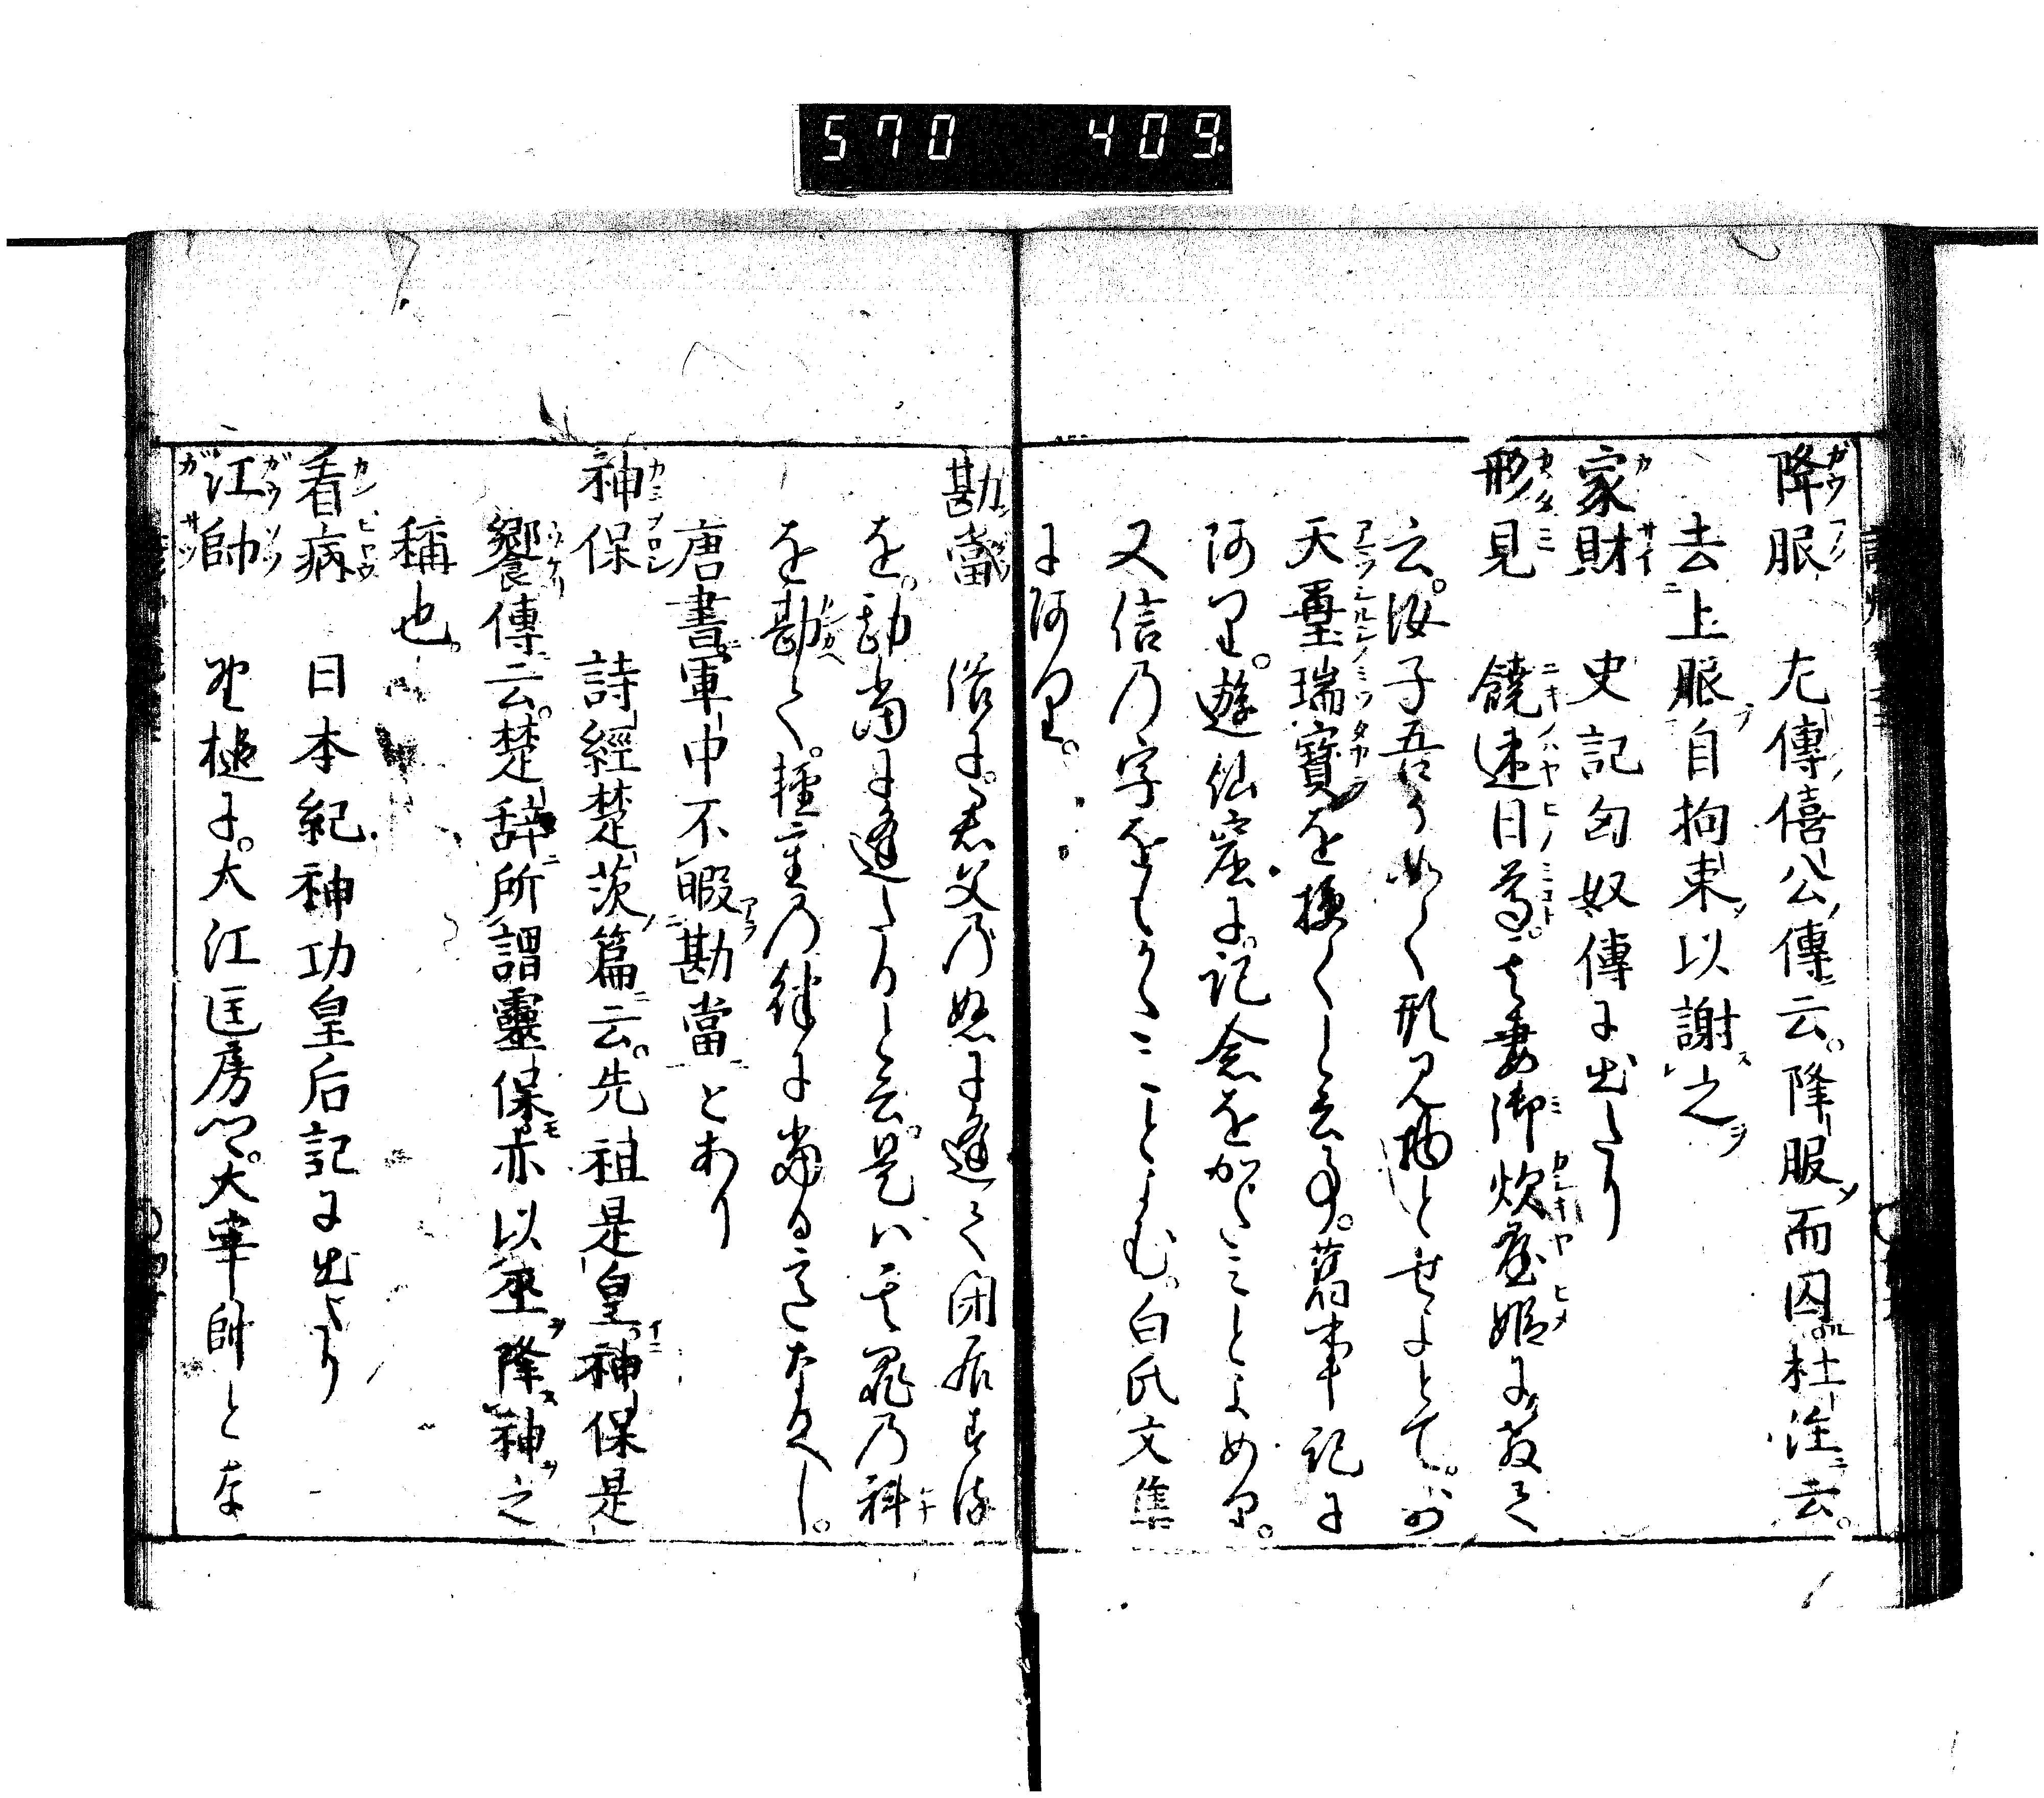 570 409
降服 左傳僖公傳云。降服而囚杜注云。
去上服自拘束以謝之
家財 史記匈奴傳に出たり
形見 饒速日尊。其妻御炊屋姫に教て
云。汝子吾がめく形見物とせよとて。則
天璽瑞寶を授くと云事。舊事記に
阿里。遊仙窟に。記念をかたミとよめり。
又信乃字をもかたミとよむ。白氏文集
に阿里。
勘當 俗に。君父乃怒に逢て閉居する
を。勘當に逢たりと云。是ハ其罪乃科
を勘て。種々乃律に當る意なるべし。
唐書軍中不暇勘當とあり
神保 詩經楚茨篇云。先祖是皇神保是
饗傳云。楚辞所謂靈保亦以巫降神之
稱也。
看病 日本紀神功皇后記に出たり
江帥 野槌に。大江匡房ハ。大宰帥とな